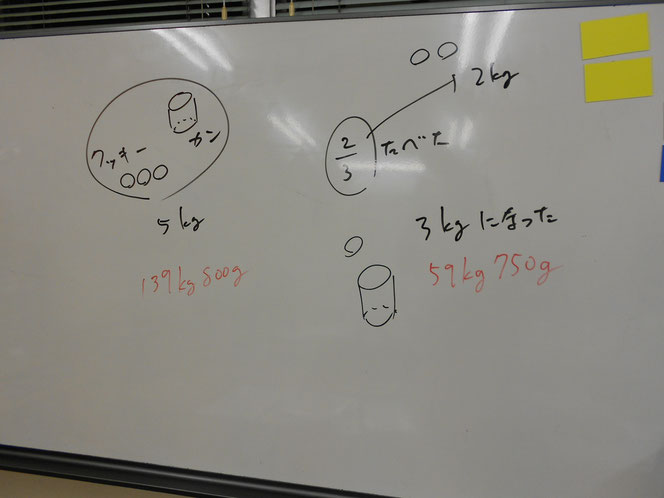 カン
クッキー
5kg
139kg500g
2kg
2/3 たべた
3kgになった
59kg750g